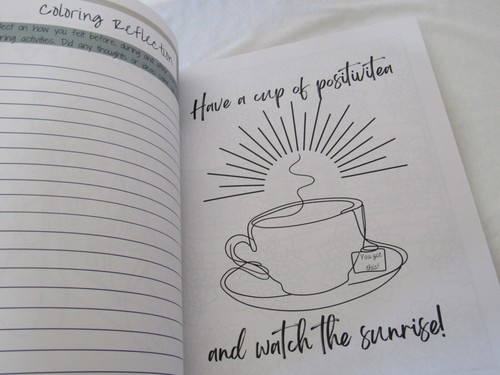 Coloring Reflection
on how you felt before, during and
activities. Did any thoughts or
Have a cup of positivitea
You got
this!
and watch the sunrise!